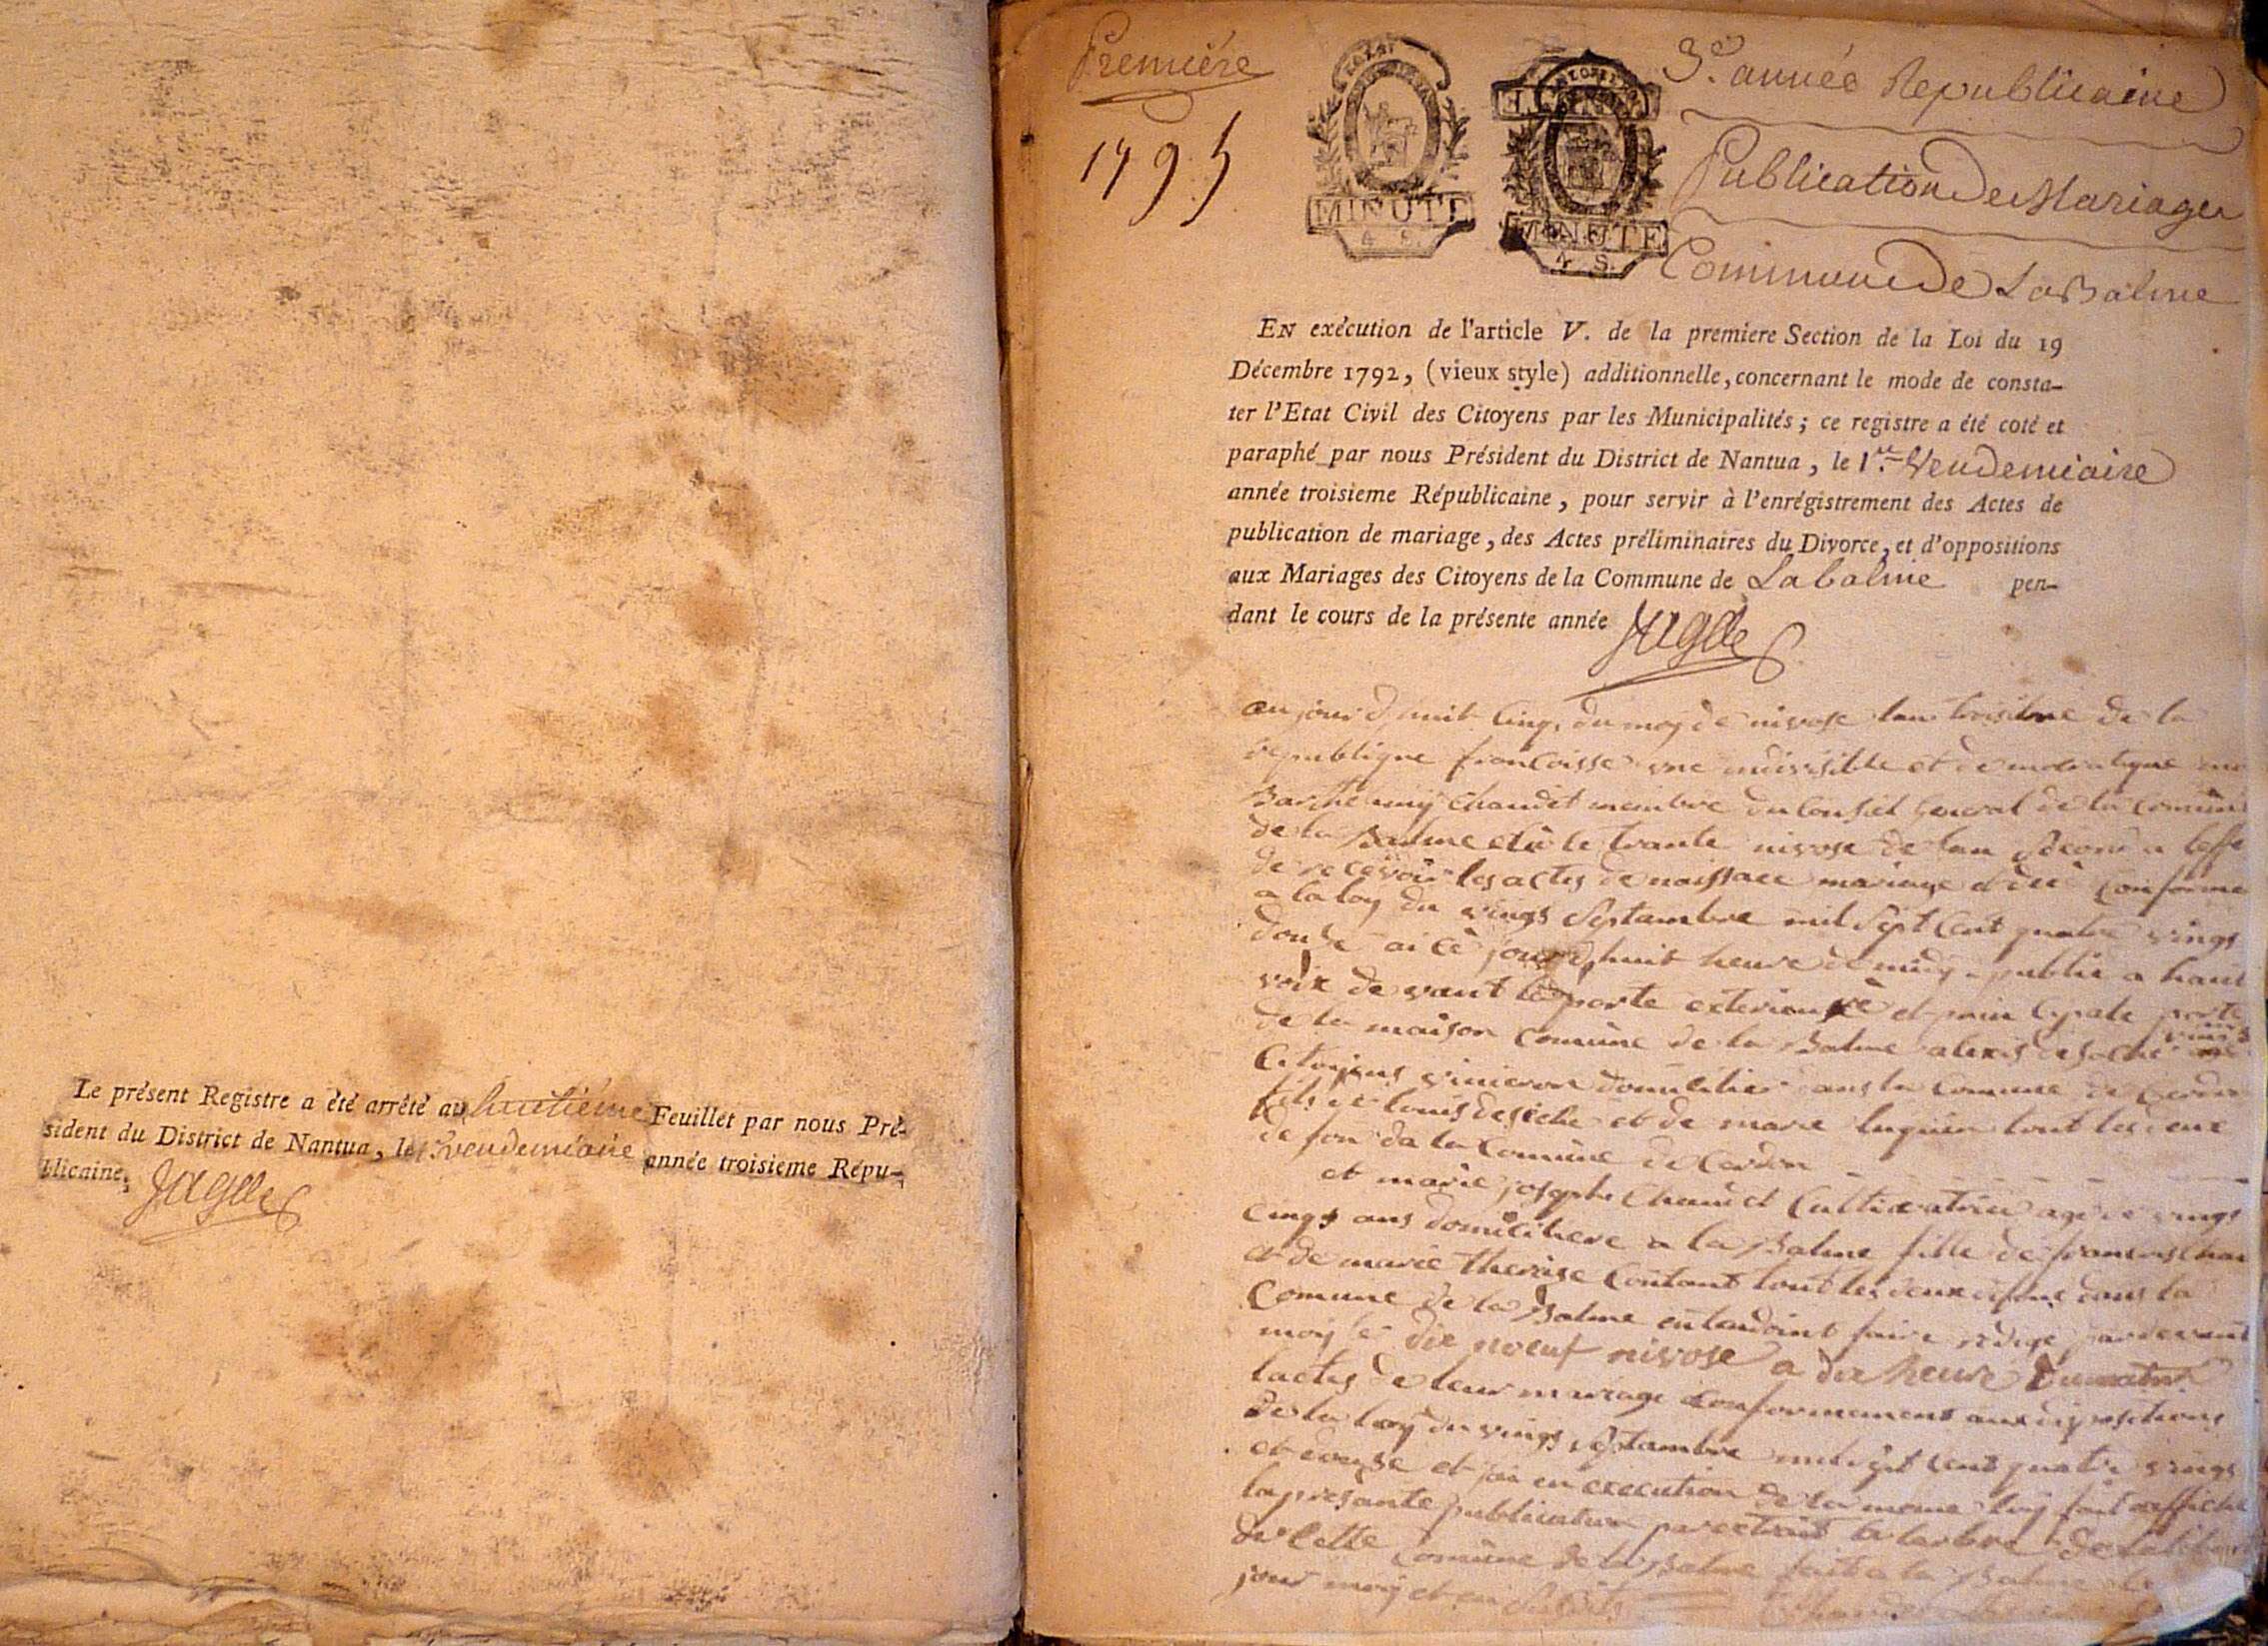 Le présent Registre a été arrété au huitiéme Feuillet par nous Pré-
sident du District de Nantua, le vendemiaire année troisieme Répu-
blicaine.
Premiére
1795
MINUTE
4 S.
MINUTE
4 S.
3e. année Republicaine
Publication De Mariages
Commune De La Balme
EN exécution de l'article V. de la premiere Section de la Loi du 19
Décembre 1792, (vieux style) additionnelle, concernant le mode de consta-
ter l'Etat Civil des Citoyens par les Municipalités; ce registre a été coté et
paraphé par nous Président du District de Nantua, le 1er. Vendemiaire
année troisieme Républicaine, pour servir à l'enrégistrement des Actes de
publication de mariage, des Actes préliminaires du Divorce, et d'oppositions
aux Mariages des Citoyens de la Commune de Labalme pen-
dant le cours de la présente année
aujourd huit cinq du moy de nivose lan troisième de la
republique francoisse une indivisible et democratique
membre du Conseil general de la comune
de la Balme le trante nivose de lan
de recevoir les actes de naissace mariage et conforme
a la loy du vings Septambre mil Sept Cent quatre vings
douse ai ce jour huit heure de midy publié a haut
voix devant la porte exterieure et porte
de la maison comune de la Balme alexis
Citoyens vinieron dans la comune de Cerdon
fils de louis et de marie tout les deux
de la Comune de Cerdon
et marie josephe Chaudet Cultivatrice age de vings
cings ans domiciliere a la Balme fille de francois
et de marie therese tout les deux dans la
Comune de la Balme entandoint faire redige par devant
moy le dix noeuf nivose a dix heure du matin
lactes de leur mariage conformement aux dispositions
de la loy du vings Septambre mil sept cent quatre vings
et douse et jai en execution de la meme loy fait affiche
la presante publication par extrait a larbre de la
de Cette Comune de la Balme fait a la Balme le
jour moy et an